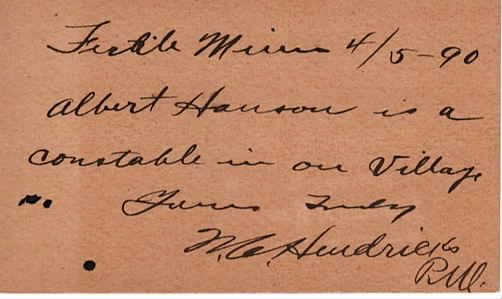 Fertile Minn 4/5-90
Albert Hanson is a
constable in our Village
Yours Truly
W.C. Hendricks
P.M.